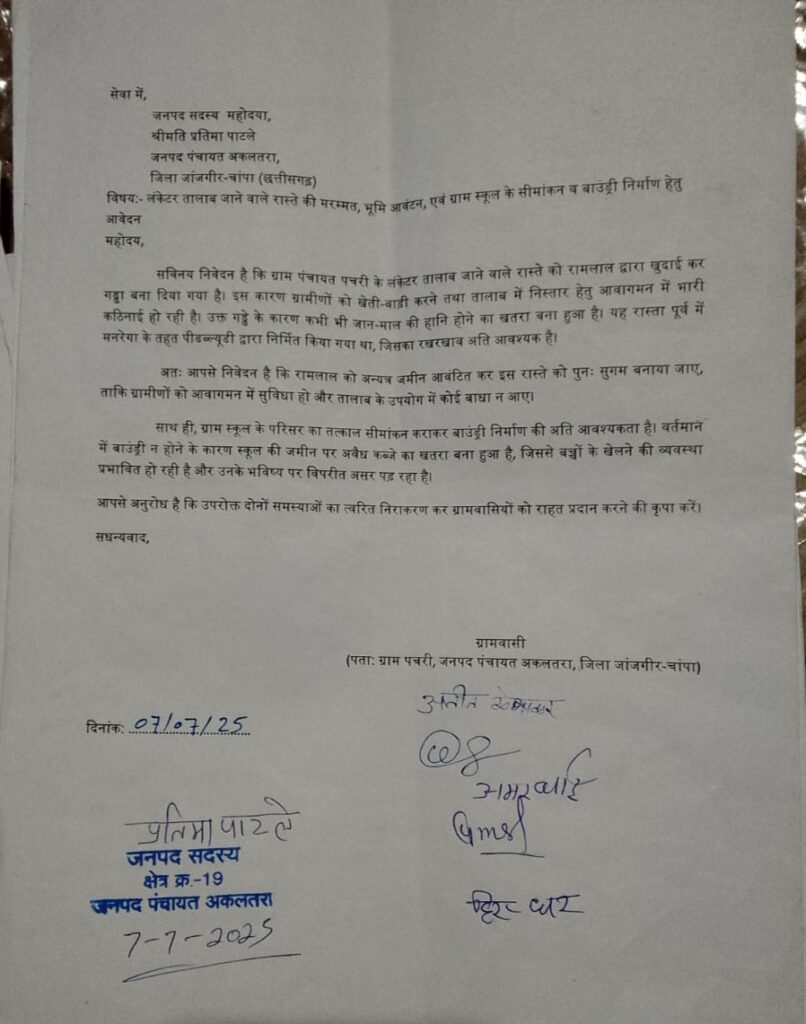 सेवा में,
जनपद सदस्य महोदया,
श्रीमति प्रतिमा पाटले
जनपद पंचायत अकलतरा,
जिला जांजगीर-चांपा (छत्तीसगढ़)
विषय:- लंकेटर तालाब जाने वाले रास्ते की मरम्मत, भूमि आबंटन, एवं ग्राम स्कूल के सीमांकन व बाउंड्री निर्माण हेतु
आवेदन
महोदय,
सविनय निवेदन है कि ग्राम पंचायत पचरी के लंकेटर तालाब जाने वाले रास्ते को रामलाल द्वारा खुदाई कर
गड्ढा बना दिया गया है। इस कारण ग्रामीणों को खेती-बाड़ी करने तथा तालाब में निस्तार हेतु आवागमन में भारी
कठिनाई हो रही है। उक्त गड्ढे के कारण कभी भी जान-माल की हानि होने का खतरा बना हुआ है। यह रास्ता पूर्व में
मनरेगा के तहत पीडब्ल्यूडी द्वारा निर्मित किया गया था, जिसका रखरखाव अति आवश्यक है।
अतः आपसे निवेदन है कि रामलाल को अन्यत्र जमीन आवंटित कर इस रास्ते को पुनः सुगम बनाया जाए,
ताकि ग्रामीणों को आवागमन में सुविधा हो और तालाब के उपयोग में कोई बाधा न आए।
साथ ही, ग्राम स्कूल के परिसर का तत्काल सीमांकन कराकर बाउंड्री निर्माण की अति आवश्यकता है। वर्तमान
में बाउंड्री न होने के कारण स्कूल की जमीन पर अवैध कब्जे का खतरा बना हुआ है, जिससे बच्चों के खेलने की व्यवस्था
प्रभावित हो रही है और उनके भविष्य पर विपरीत असर पड़ रहा है।
आपसे अनुरोध है कि उपरोक्त दोनों समस्याओं का त्वरित निराकरण कर ग्रामवासियों को राहत प्रदान करने की कृपा करें।
सधन्यवाद,
ग्रामवासी
(पता: ग्राम पचरी, जनपद पंचायत अकलतरा, जिला जांजगीर-चांपा)
दिनांक: 07/07/25
प्रतिमा पाटले
जनपद सदस्य
क्षेत्र क्र.-19
जनपद पंचायत अकलतरा
7-7-2025